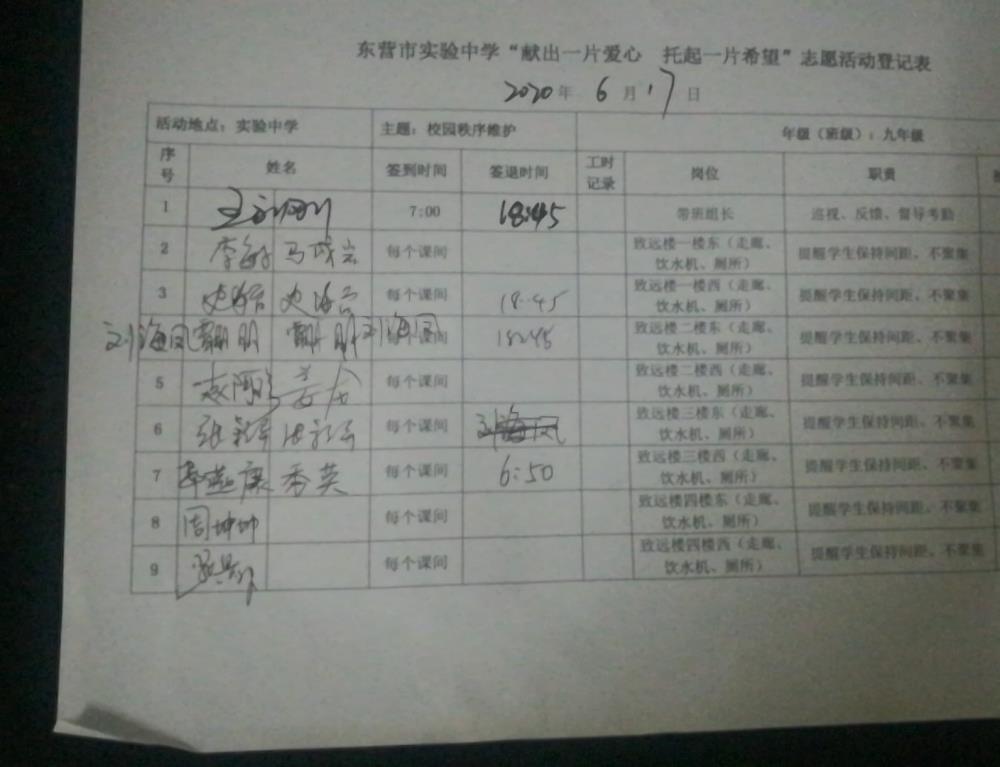 东营市实验中学“献出一片爱心 托起一片希望”志愿活动登记表
2020 年 6 月 17 日
活动地点：实验中学 主题：校园秩序维护 年级（班级）：九年级
序号 姓名 签到时间 签退时间 工时记录 岗位 职责
1 7:00 18:45 带班组长 巡视、反馈、督导考勤
2 李敏 马成云 每个课间 致远楼一楼东（走廊、饮水机、厕所） 提醒学生保持间距、不聚集
3 每个课间 18:45 致远楼一楼西（走廊、饮水机、厕所） 提醒学生保持间距、不聚集
刘海凤 刘海凤 18:45 致远楼二楼东（走廊、饮水机、厕所） 提醒学生保持间距、不聚集
5 每个课间 致远楼二楼西（走廊、饮水机、厕所） 提醒学生保持间距、不聚集
6 每个课间 致远楼三楼东（走廊、饮水机、厕所） 提醒学生保持间距、不聚集
7 康秀英 每个课间 6:50 致远楼三楼西（走廊、饮水机、厕所） 提醒学生保持间距、不聚集
8 周坤坤 每个课间 致远楼四楼东（走廊、饮水机、厕所） 提醒学生保持间距、不聚集
9 每个课间 致远楼四楼西（走廊、饮水机、厕所） 提醒学生保持间距、不聚集